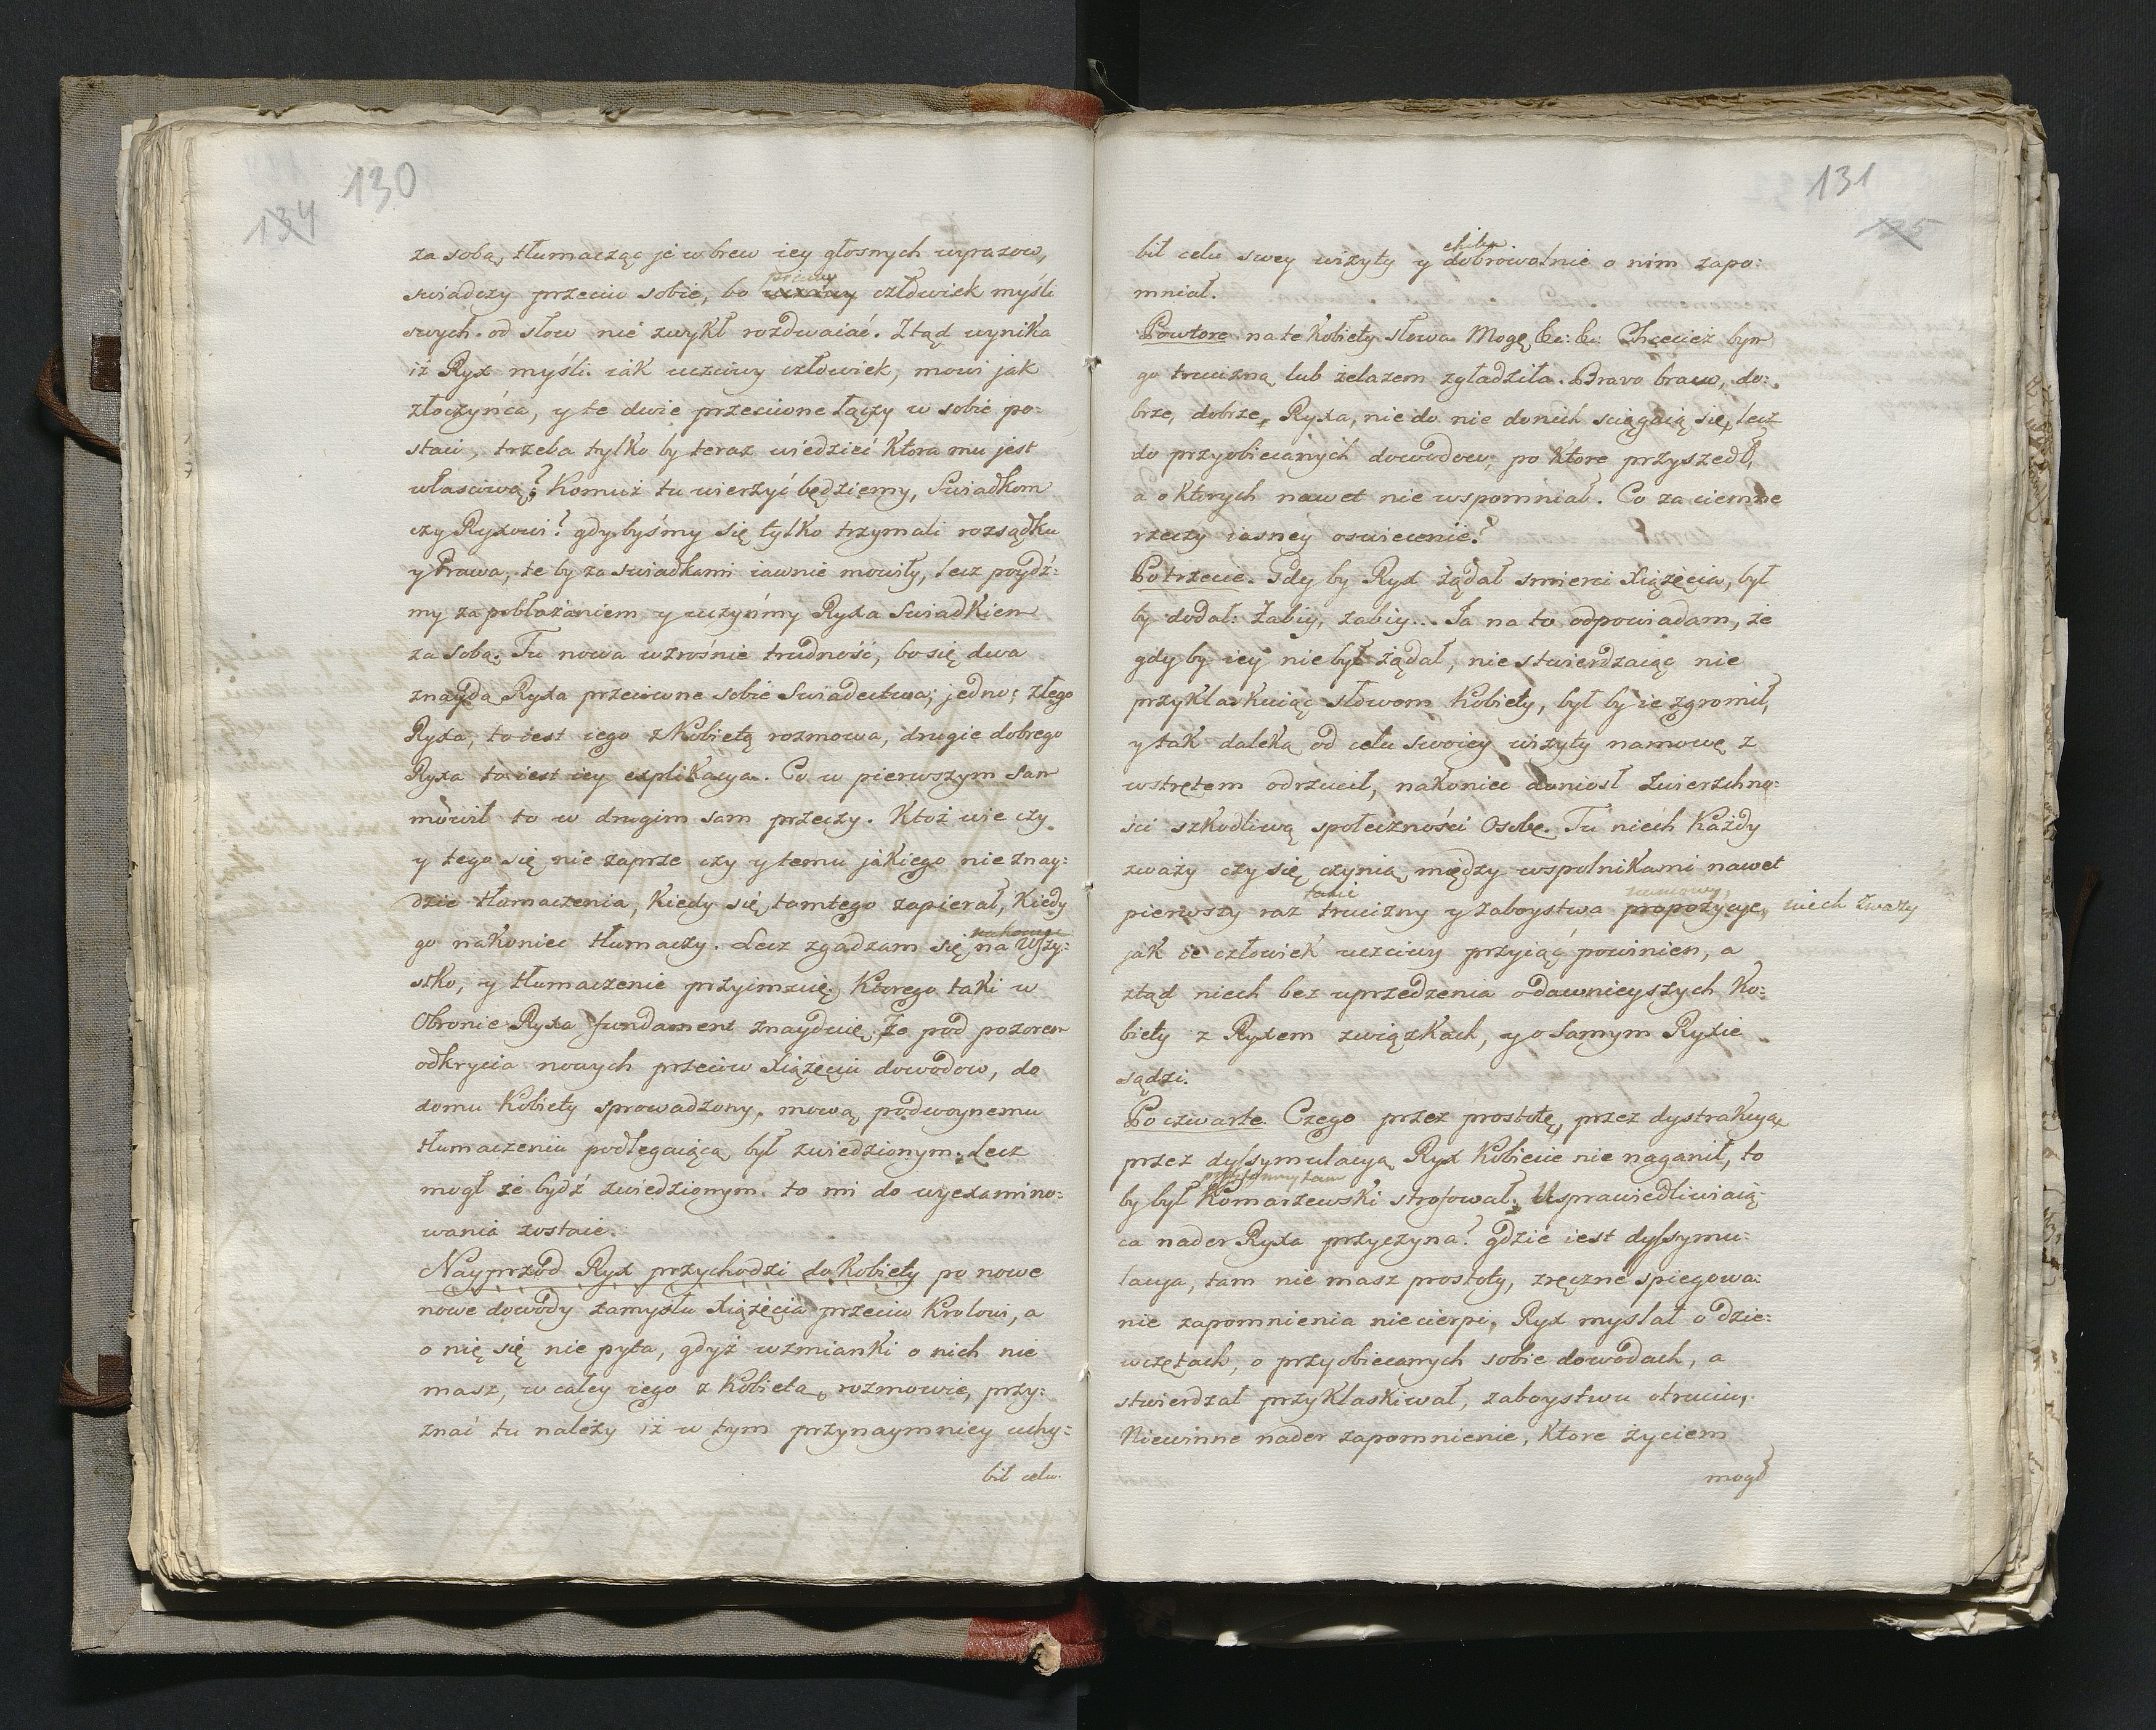 130
134
za sobą, tłumacząc je wbrew iey głosnych wyrazow,
prawy
swiadczy przeciw sobie, bo uczciwy człowiek myśli
swych od słow nie zwykł rozdwaiać. Ztąd wynika
iż Ryx myśli iak uczciwy człowiek, mowi jak
złoczyńca, y te dwie przeciwne łączy w sobie po:
staci, trzeba tylko by teraz wiedzieć ktora mu jest
własciwą? Komuż tu wierzyć będziemy, Swiadkom
czy Ryxowi? gdybyśmy się tylko trzymali rozsądku
y Prawa, te by za swiadkami iawnie mowiły, lecz poydź:
my za pobłażaniem y uczyńmy Ryxa Swiadkiem
za sobą: Tu nowa wzrośnie trudność, bo się dwa
znaydą Ryxa przeciwne sobie Swiadectwa; jedno złego
Ryxa, to iest iego z Kobietą rozmowa, drugie dobrego
Ryxa to iest iey explikacya. Co w pierwszym sam
mówił to w drugim sam przeczy. Ktoż wie czy
y tego się nie zaprze czy y temu jakiego nie znay:
dzie tłomaczenia, kiedy się tamtego zapierał, kiedy
go nakoniec tłumaczy. Lecz zgadzam się na wszy:
stko, y tłumaczenie przyimuię, ktorego taki w
Obronie Ryxa fundament znayduię. Że pod pozorem
odkrycia nowych przeciw Xiążęciu dowodow, do
domu Kobiety sprowadzony, mową podwoynemu
tłumaczeniu podlegaiącą był zwiedzionym. Lecz
mogł że bydź zwiedzionym to mi do wyexamino:
wania zostaie.
Nayprzod Ryx przychodzi do Kobiety po nowe
nowe dowody zamysłu Xiążęcia przeciw Krolowi, a
o nię się nie pyta, gdyż wzmianki o nich nie
masz, w całey iego z Kobietą rozmowie, przy:
znać tu należy iż w tym przynaymniey uchy:
bił celu
131
chiba
bił celu swey wizyty y dobrowolnie o nim zapo:
mniał.
Powtore na te Kobiety słowa Mogę &c: &c: Chcecież bym
go trucizną lub żelazem zgładziła. Bravo bravo, do:
brze, dobrze, Ryxa, nie do nie do nich sciągaią się, lecz
do przyobiecanych dowodow, po ktore przyszedł,
a o ktorych nawet nie wspomniał. Co za ciemne
rzeczy iasney oswiecenie?
Potrzecie. Gdy by Ryx żądał smierci Xiążęcia, był
by dodał: Zabiy, zabiy... Ja na to odpowiadam, że
gdy by iey nie był żądał, nie stwierdzaiąc nie
przyklaskuiąc słowom Kobiety, był by ie zgromił,
y tak daleką od celu swoiey wizyty namowę z
wstrętem odrzucił, nakoniec doniosł Zwierzchno:
sci szkodliwą społeczności Osobę. Tu niech każdy
zważy czy się czynią między wspolnikami nawet
takie
pierwszy raz trucizny y zaboystwa propozycye, niech zważy
jak ie człowiek uczciwy przyiąć powinien, a
ztąd niech bez uprzedzenia o dawnieyszych Ko:
biety z Ryxem związkach, y o samym Ryxie
sądzi.
Po czwarte. Czego przez prostotę, przez dystrakcyą
przez dyssymulacyą Ryx Kobiecie nie naganił, to
by był Komarzewski strofował. Usprawiedliwiaią:
ca nader Ryxa przyczyna? gdzie iest dyssymu:
lacya, tam nie masz prostoty, zręczne spiegowa:
nie zapomnienia nie cierpi, Ryx myslał o dzie:
wczętach, o przyobiecanych sobie dowodach, a
stwierdzał przyklaskiwał, zaboystwu otruciu,
Niewinne nader zapomnienie, ktore życiem
mogł